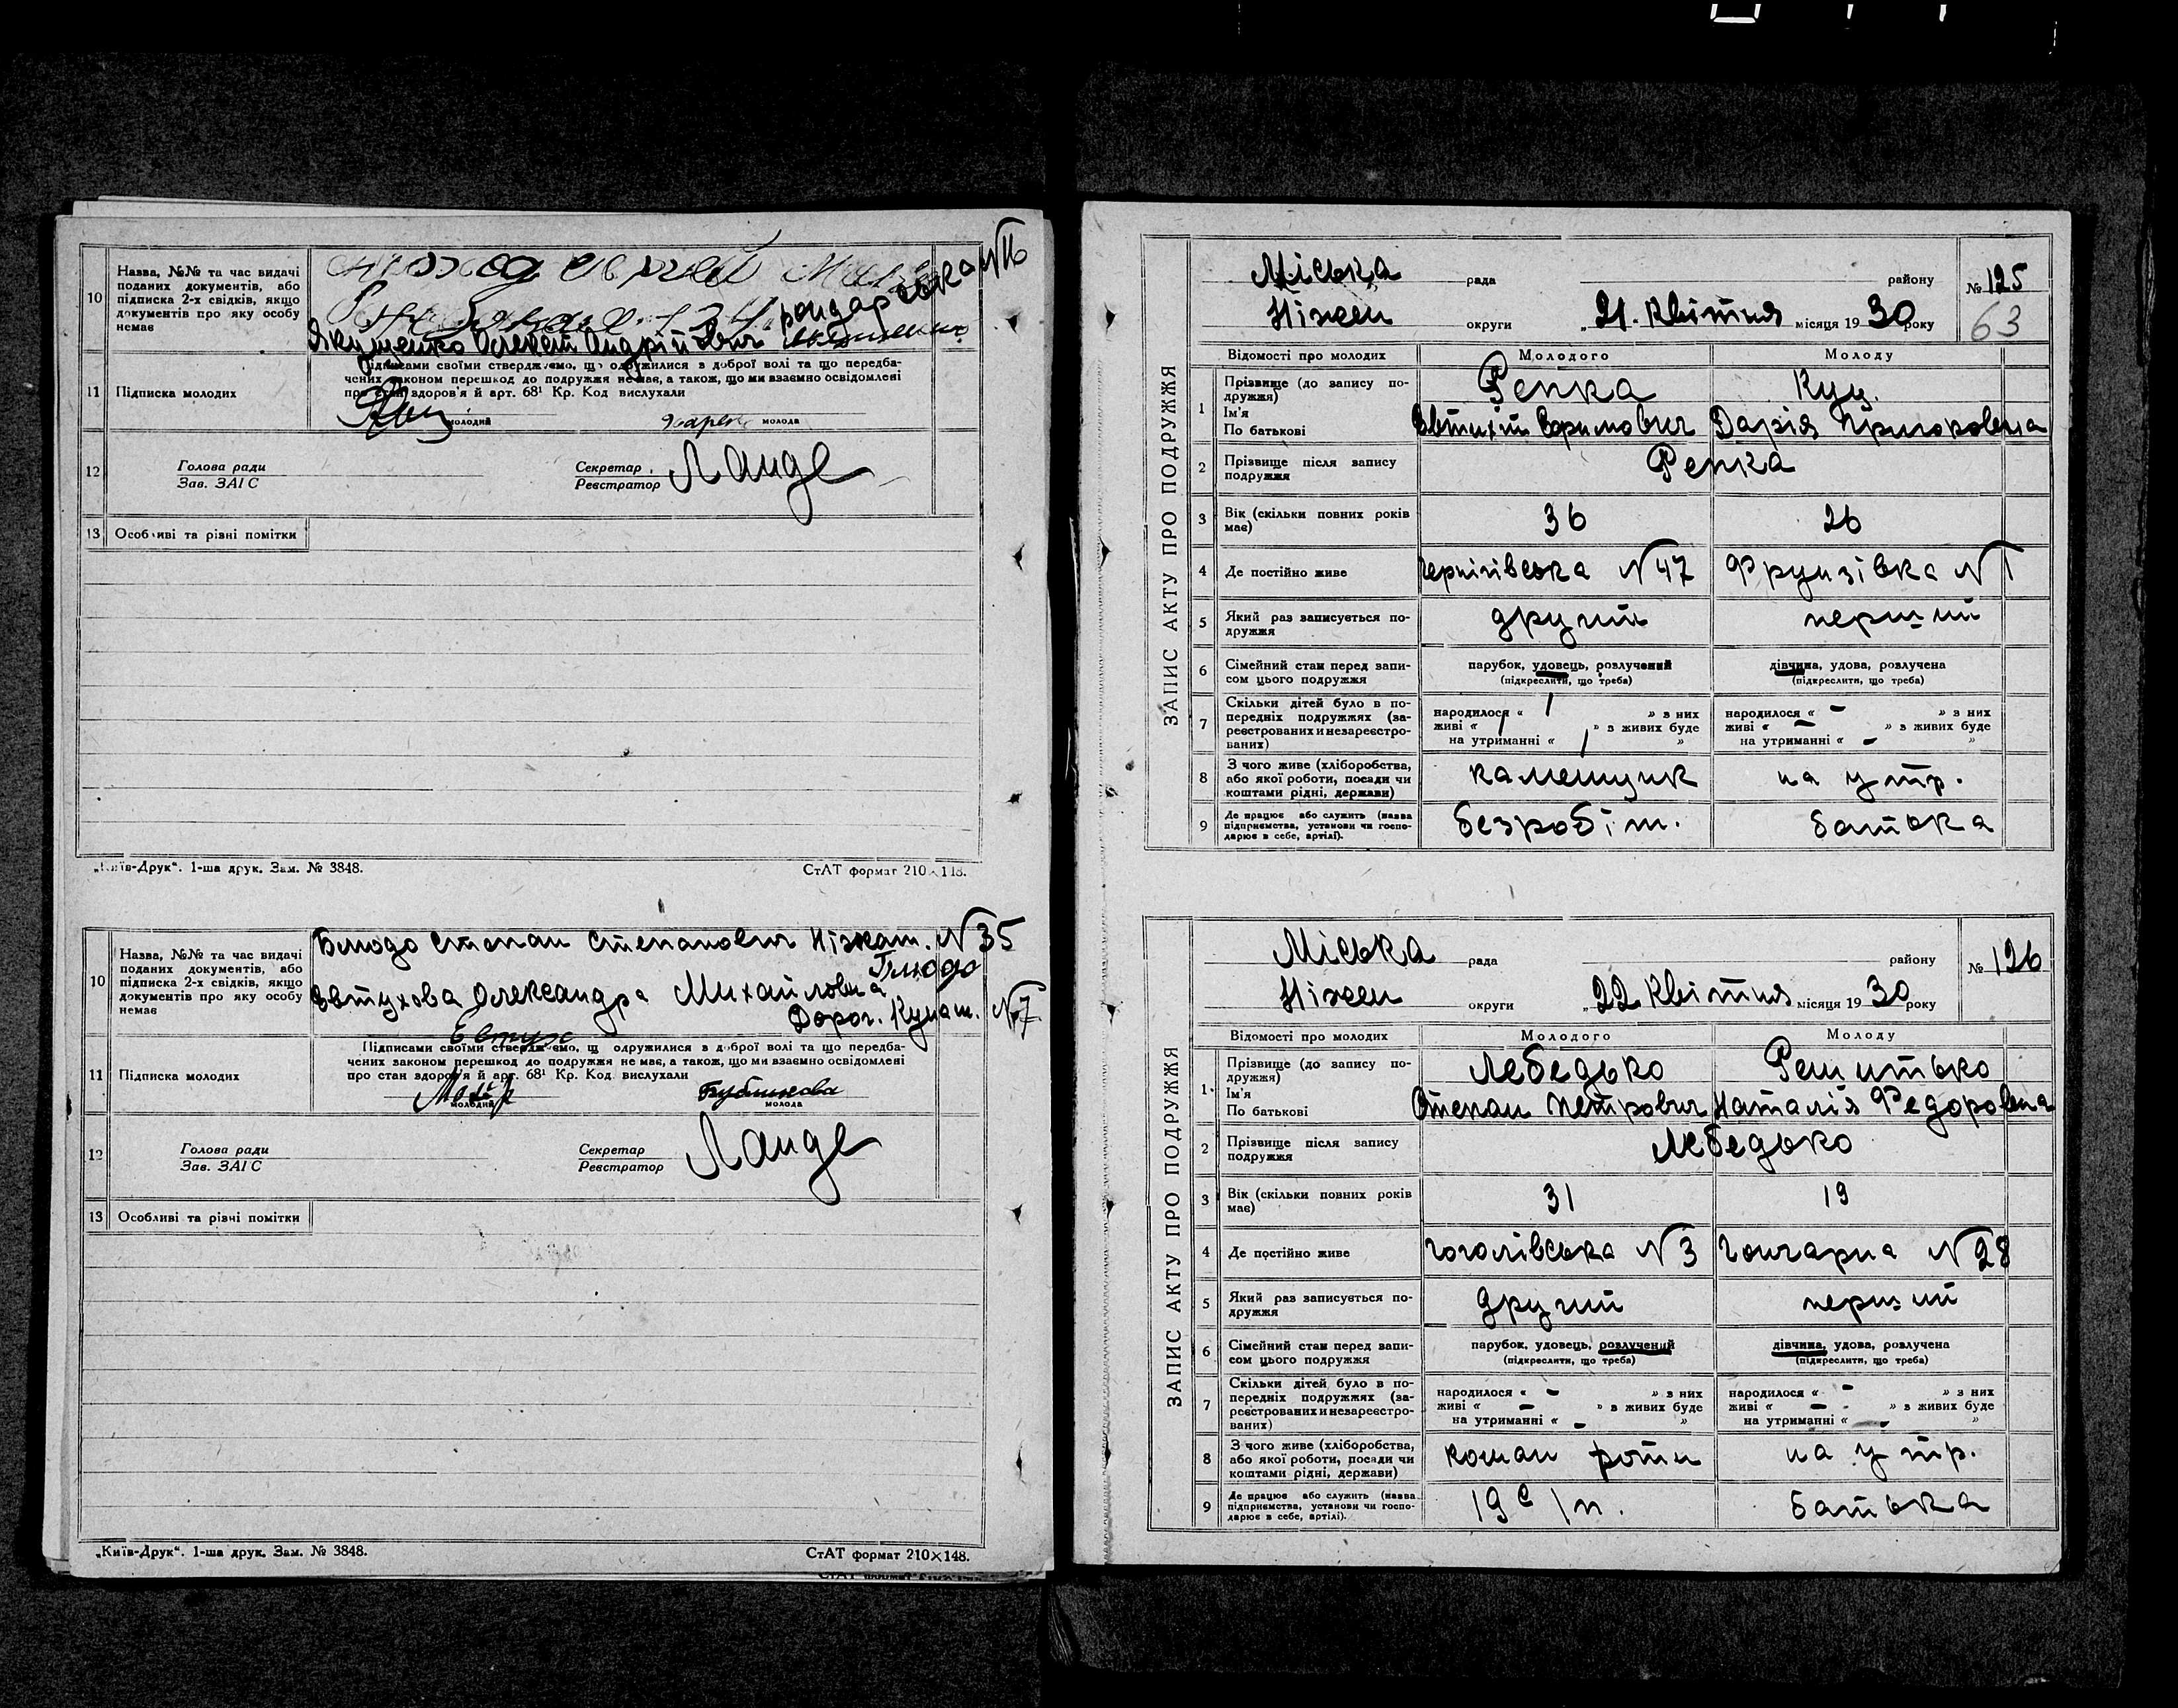 10 Назва, №№ та час видачі
поданих документів, або
підписка 2-х свідків, якщо
документів про яку особу
немає
N 16
Якущенко Олексій Андрійович
11 Підписка молодих
Підписами своїми стверджуємо, що одружилися в доброї волі та що передба-
чених законом перешкод до подружжя немає, а також, що ми взаємно освідомлені
про стан здоров'я й арт. 68¹ Кр. Код вислухали
молодий молода
12 Голова ради Секретар
Зав. ЗАГС Реєстратор Ланде
13 Особливі та різні помітки
„Київ-Друк“. 1-ша друк. Зам. № 3848. СтАТ формат 210×148.
10 Назва, №№ та час видачі
поданих документів, або
підписка 2-х свідків, якщо
документів про яку особу
немає
Блюдо Степан Степанович Ніжат. N 35
Блюдо
Евтухова Олександра Михайловна
Дорог. Кунат. N 7
Евтух
11 Підписка молодих
Підписами своїми стверджуємо, що одружилися в доброї волі та що передба-
чених законом перешкод до подружжя немає, а також, що ми взаємно освідомлені
про стан здоров'я й арт. 68¹ Кр. Код вислухали
Бубликова
молодий молода
12 Голова ради Секретар
Зав. ЗАГС Реєстратор Ланде
13 Особливі та різні помітки
„Київ-Друк“. 1-ша друк. Зам. № 3848. СтАТ формат 210×148.
ЗАПИС АКТУ ПРО ПОДРУЖЖЯ
Міська рада району № 125
Ніжен округи „21. Квітня місяця 1930 року
63
Відомості про молодих Молодого Молоду
1 Прізвище (до запису по-
дружжя) Репка Куц.
Ім'я
По батькові Євтихій Єфимович Дарія Прокоповна
2 Прізвище після запису
подружжя Репка
3 Вік (скільки повних років
має) 36 26
4 Де постійно живе Чернігівська N 47 Фрунзівка N 1
5 Який раз записується по-
дружжя другий перший
6 Сімейний стан перед запи-
сом цього подружжя парубок, удовець, розлучений дівчина, удова, розлучена
(підкреслити, що треба) (підкреслити, що треба)
7 Скільки дітей було в по-
передніх подружжях (за-
реєстрованих и незареєстро-
ваних)
народилося « 1 » з них народилося « - » з них
живі « 1 » з живих буде живі « - » з живих буде
на утриманні « 1 » на утриманні « - »
8 З чого живе (хліборобства,
або якої роботи, посади чи
коштами рідні, держави) каменщик на утр.
9 Де працює або служить (назва
підприємства, установи чи госпо-
дарює в себе, артілі). безробіт. батька
ЗАПИС АКТУ ПРО ПОДРУЖЖЯ
Міська рада району № 126
Ніжен округи „22 Квітня місяця 1930 року
Відомості про молодих Молодого Молоду
1 Прізвище (до запису по-
дружжя) Лебедько Решитько
Ім'я
По батькові Степан Петрович Наталія Федоровна
2 Прізвище після запису
подружжя Лебедько
3 Вік (скільки повних років
має) 31 19
4 Де постійно живе Гоголівська N 3 Гончарна N 28
5 Який раз записується по-
дружжя другий перший
6 Сімейний стан перед запи-
сом цього подружжя парубок, удовець, розлучений дівчина, удова, розлучена
(підкреслити, що треба) (підкреслити, що треба)
7 Скільки дітей було в по-
передніх подружжях (за-
реєстрованих и незареєстро-
ваних)
народилося « - » з них народилося « - » з них
живі « - » з живих буде живі « - » з живих буде
на утриманні « - » на утриманні « - »
8 З чого живе (хліборобства,
або якої роботи, посади чи
коштами рідні, держави) коман роти на утр.
9 Де працює або служить (назва
підприємства, установи чи госпо-
дарює в себе, артілі). 19 е /п. батька